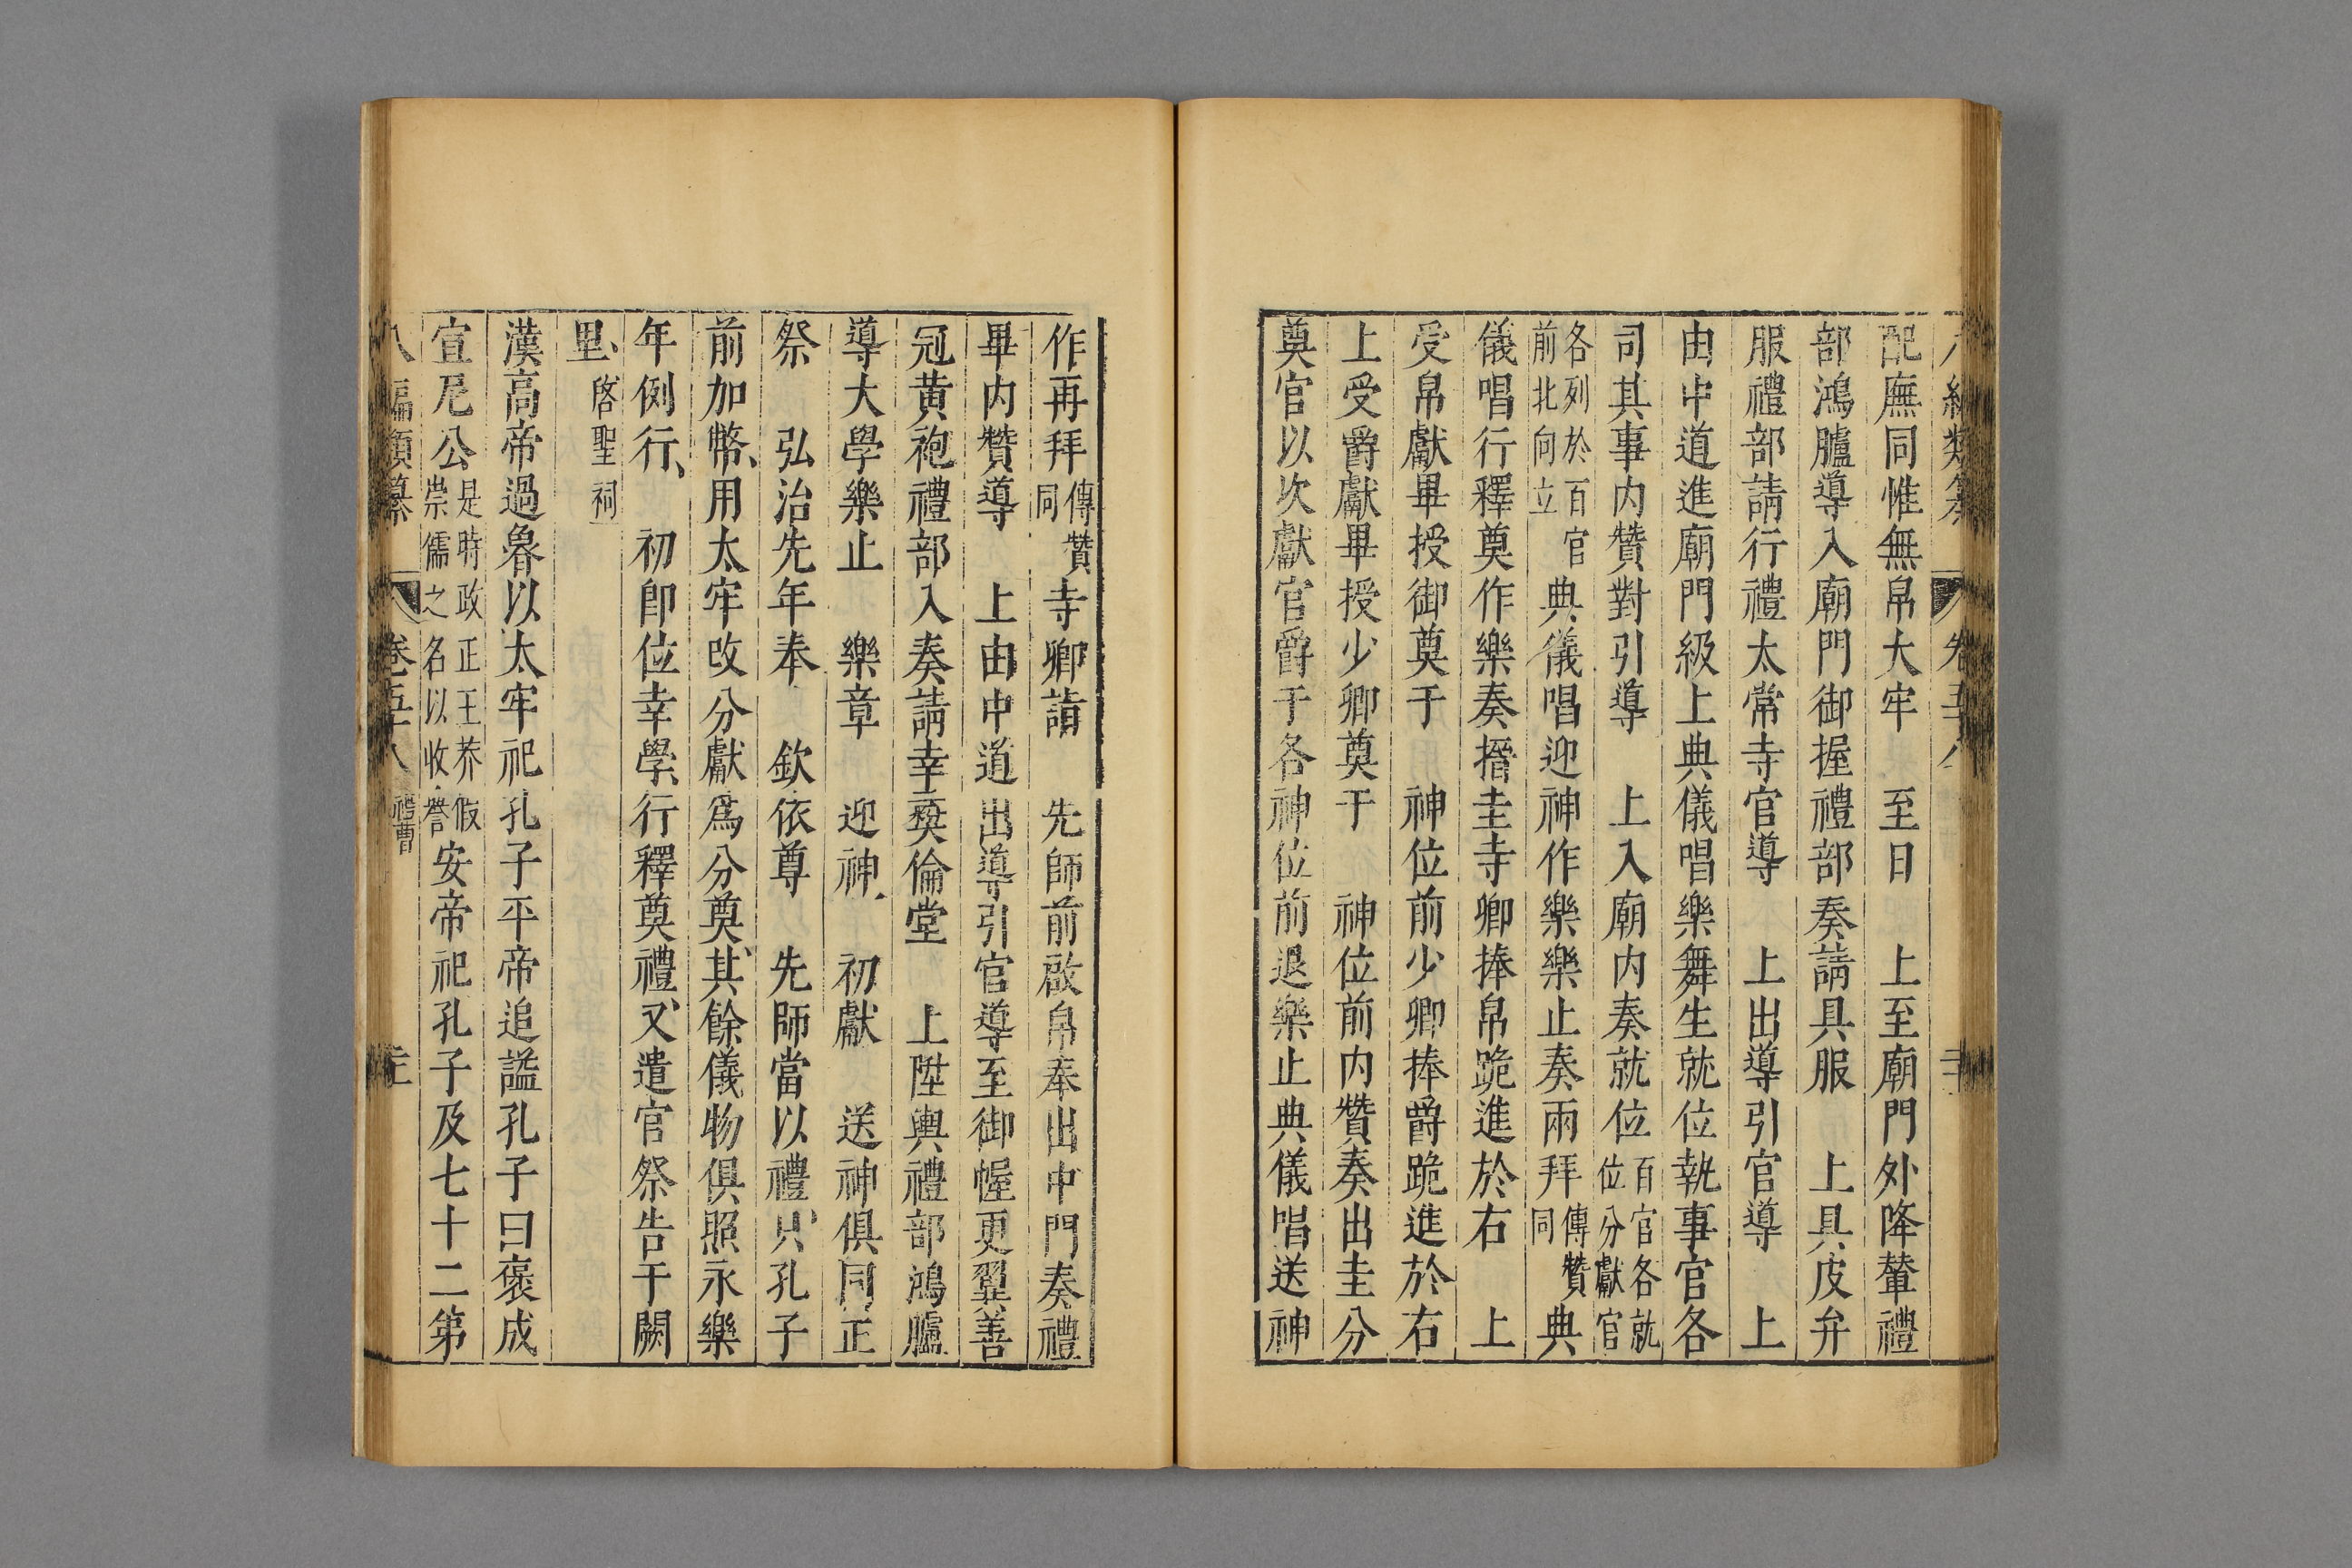 配廡同惟無帛大牢　至日　上至廟門外降輦禮
部鴻臚導入廟門御握禮部奏請具服　上具皮弁
服禮部請行禮太常寺官導　上出導引官導　上
由中道進廟門級上典儀唱樂舞生就位執事官各
司其事內贊對引導　上入廟內奏就位百官各就位分獻官
各列於百官前北向立典儀唱迎神作樂樂止奏兩拜傳贊同典
儀唱行釋奠作樂奏搢圭寺卿捧帛跪進於右　上
受帛獻畢授御奠于　神位前少卿捧爵跪進於右
上受爵獻畢授少卿奠于　神位前內贊奏出圭分
奠官以次獻官爵于各神位前退樂止典儀唱送神
作再拜傳贊同寺卿詣　先師前啟帛奉出中門奏禮
畢內贊導　上由中道出導引官導至御幄更翼善
冠黃袍禮部入奏請幸彝倫堂　上陞輿禮部鴻臚
導大學樂止　樂章　迎神　初獻　送神俱同正
祭　弘治先年奉　欽依尊　先師當以禮只孔子
前加幣用太牢改分獻爲分奠其餘儀物俱照永樂
年例行　初卽位幸學行釋奠禮又遣官祭告于闕
里　啓聖祠
漢高帝過魯以太牢祀孔子平帝追謚孔子曰褒成
宣尼公是時政正王莽假崇儒之名以收譽安帝祀孔子及七十二第
八編類纂　卷五十八　禮曹